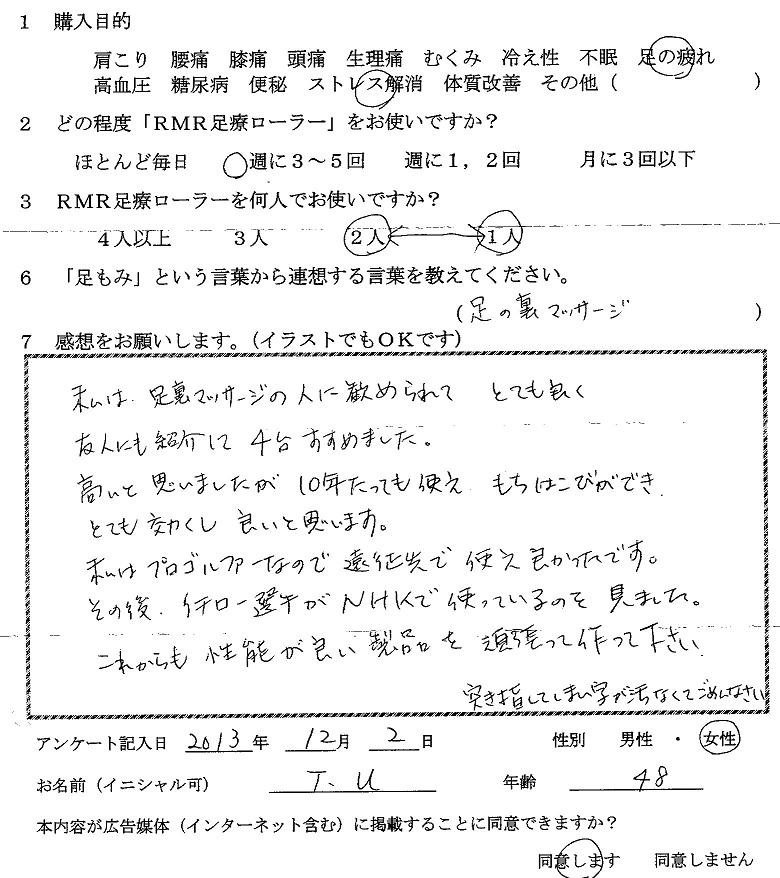 1 購入目的
肩こり 腰痛 膝痛 頭痛 生理痛 むくみ 冷え性 不眠 足の疲れ
高血圧 糖尿病 便秘 ストレス解消 体質改善 その他( )
2 どの程度「RMR足療ローラー」をお使いですか?
ほとんど毎日 週に3~5回 週に1,2回 月に3回以下
3 RMR足療ローラーを何人でお使いですか?
4人以上 3人 2人 1人
6 「足もみ」という言葉から連想する言葉を教えてください。
(足の裏マッサージ )
7 感想をお願いします。(イラストでもOKです)
私は、足裏マッサージの人に歓められて とても良く
友人にも紹介して 4台 すすめました。
高いと思いましたが 10年たっても使え、もちはこびができ、
とても効くし 良いと思います。
私はプロゴルファーなので 遠征先で 使え良かったです。
その後、イチロー選手がNHKで使っているのを見ました。
これからも 性能が良い製品を 頑張って作って下さい
突き指してしまい字が汚なくてごめんなさい
アンケート記入日 2013年 12月 2日 性別 男性 ・ 女性
お名前(イニシャル可) T.U 年齢 48
本内容が広告媒体(インターネット含む)に掲載することに同意できますか?
同意します 同意しません